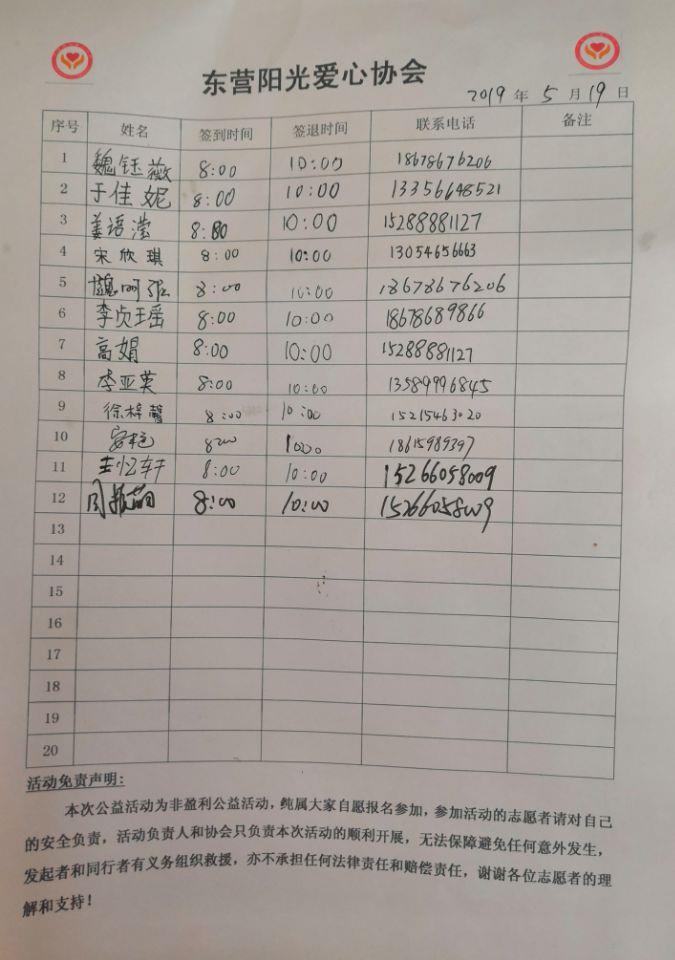 东营阳光爱心协会
2019年5月19日
序号 姓名 签到时间 签退时间 联系电话 备注
1 魏钰薇 8:00 10:00 18678676206
2 于佳妮 8:00 10:00 13356648521
3 姜语滢 8:00 10:00 15288881127
4 宋欣琪 8:00 10:00 13054656663
5 魏 8:00 10:00 18678676206
6 李贞瑶 8:00 10:00 18678689866
7 高娟 8:00 10:00 15288881127
8 李亚英 8:00 10:00 13589996845
9 徐梓馨 8:00 10:00 15215463020
10 8:00 10:00 18615989397
11 轩 8:00 10:00 15266058009
12 周 8:00 10:00 15266058009
13
14
15
16
17
18
19
20
活动免责声明:
本次公益活动为非盈利公益活动，纯属大家自愿报名参加，参加活动的志愿者请对自己
的安全负责，活动负责人和协会只负责本次活动的顺利开展，无法保障避免任何意外发生，
发起者和同行者有义务组织救援，亦不承担任何法律责任和赔偿责任，谢谢各位志愿者的理
解和支持！